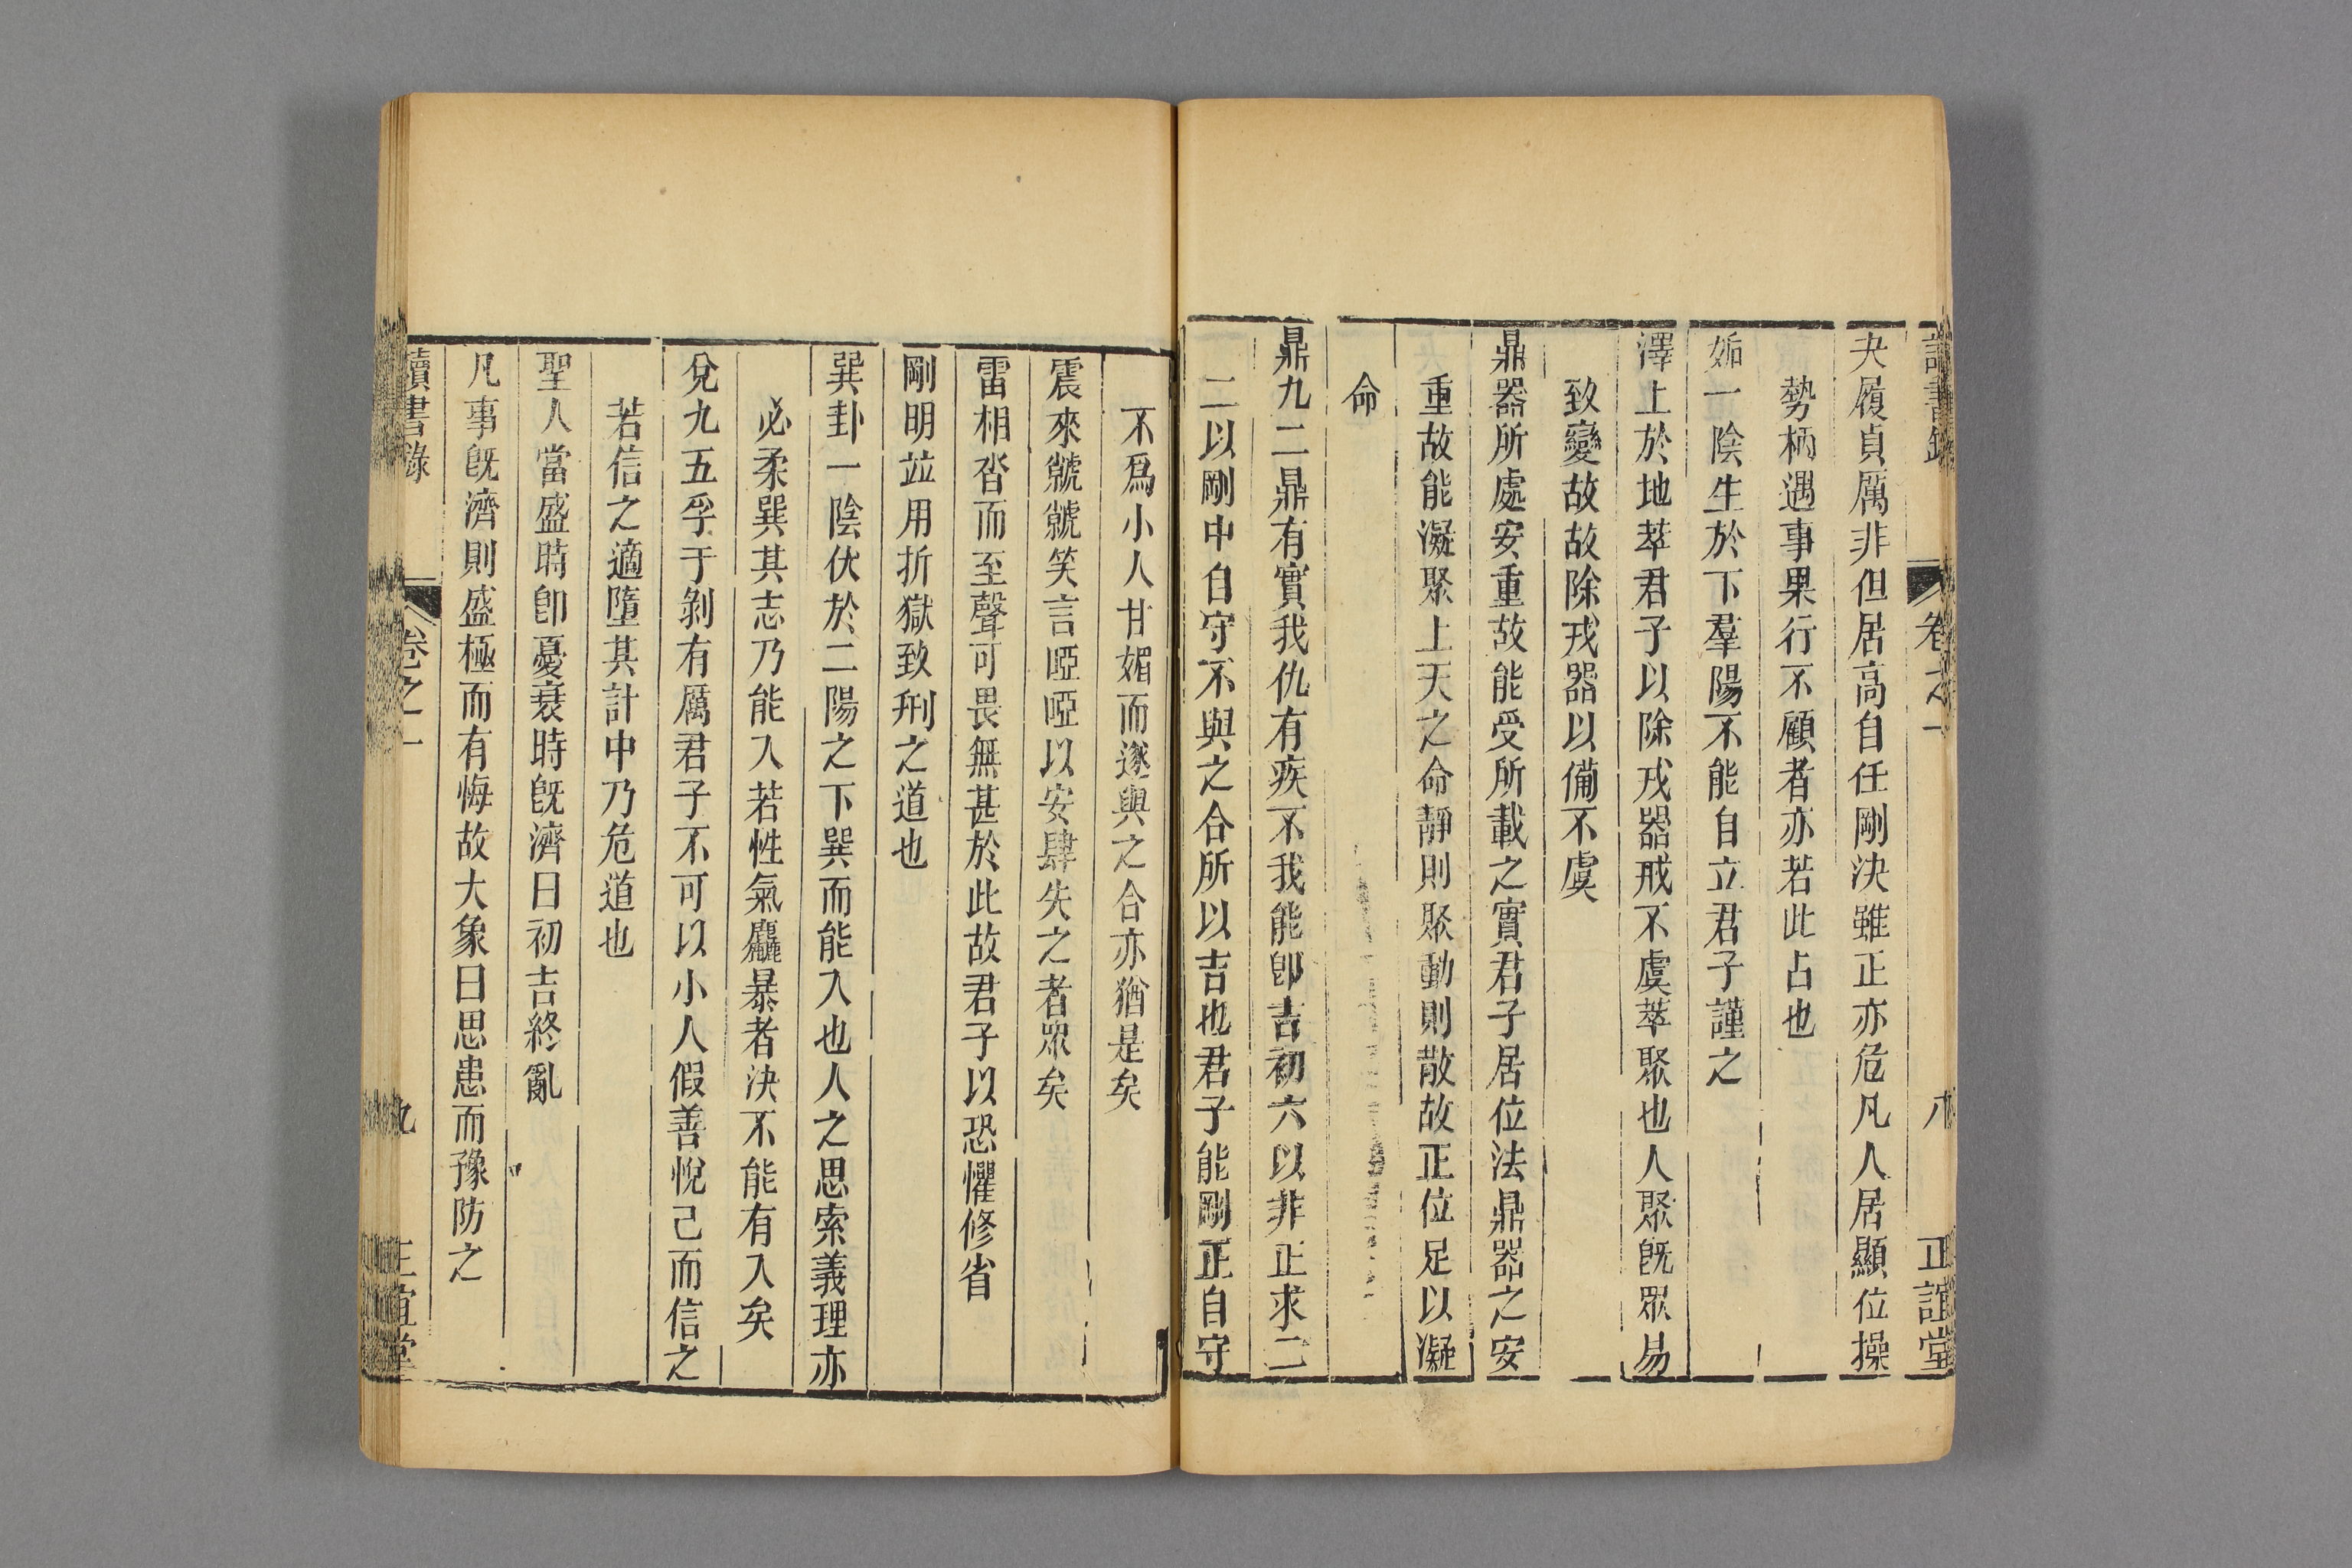 讀書錄 卷之一 八 正誼堂
夬履貞厲非但居高自任剛決雖正亦危凡人居顯位操
勢柄遇事果行不顧者亦若此占也
姤一陰生於下羣陽不能自立君子謹之
澤上於地萃君子以除戎器戒不虞萃聚也人聚旣眾易
致變故故除戎器以備不虞
鼎器所處安重故能受所載之實君子居位法鼎器之安
重故能凝聚上天之命靜則聚動則散故正位足以凝
命
鼎九二鼎有實我仇有疾不我能卽吉初六以非正求二
二以剛中自守不與之合所以吉也君子能剛正自守
不爲小人甘媚而遂與之合亦猶是矣
震來虩虩笑言啞啞以安肆失之者眾矣
雷相沓而至聲可畏無甚於此故君子以恐懼修省
剛明竝用折獄致刑之道也
巽卦一陰伏於二陽之下巽而能入也人之思索義理亦
必柔巽其志乃能入若性氣麤暴者決不能有入矣
兌九五孚于剝有厲君子不可以小人假善悅己而信之
若信之適墮其計中乃危道也
聖人當盛時卽憂衰時旣濟曰初吉終亂
凡事旣濟則盛極而有悔故大象曰思患而豫防之
讀書錄 卷之一 九 正誼堂